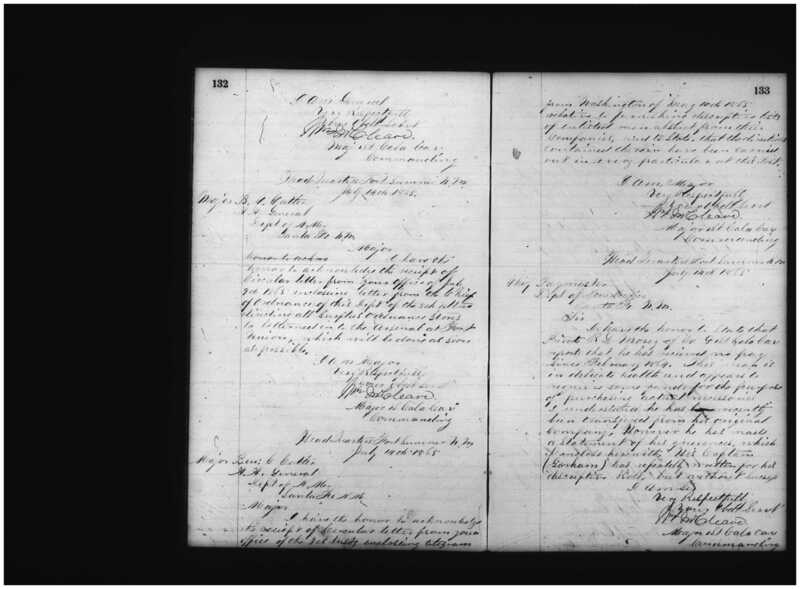 132
I Am General
Very Respectfully
Your Obdt Servt
Wm McCleave
Major 1st Cala Cav
Commanding
Head Quarters Fort Sumner N. M.
July 14th 1865.
Major B. C. Cutler
A. A. General
Dept of N. M.
Santa Fe N. M.
Major
I have the
honor to acknowledge the receipt of
Circular letter from your office of July
3d 1865 enclosing letter from the Chief
of Ordnance of this Dept of the
directing all Surplus Ordnance Stores
to be turned in to the Arsenal at Fort
Union, which will be done as soon
as possible.
I Am Major
Very Respectfully
Your Obdt Servt
Wm McCleave
Major 1st Cala Cav
Commanding
Head Quarters Fort Sumner N. M.
July 14th 1865
Major Ben C. Cutler
A. A. General
Dept of N. M.
Santa Fe N. M.
Major
I have the honor to acknowledge
the receipt of Circular letter from your
office of the 3d enclosing telegram
133
from Washington of May 1865
relative to furnishing descriptive lists
of enlisted men absent from their
Companies, and to state that the directions
contained therein have been carried
out in every particular at this Post.
I Am, Major
Very Respectfully
Your Obdt Servt
Wm McCleave
Major 1st Cala Cav
Commanding
Head Quarters Fort Sumner N. M.
July 14th 1865
Chief Paymaster
Dept of New Mexico
Santa Fe N. M.
Sir
I have the honor to state that
Private R. L. Co. G 1st Cala Cav
reports that he has received no pay
since February 1864. This man is
in delicate health and appears to
require some funds for the purpose
of purchasing actual necessaries
I understand he has recently
been transfered from his original
Company. However he has made
a statement of his grievances, which
I enclose herewith. His Captain
(Gorham) has repeatedly written for his
descriptive Roll, but without success
I Am Sir
Very Respectfully
Your Obdt Servt
Wm McCleave
Major 1st Cala Cav
Commanding